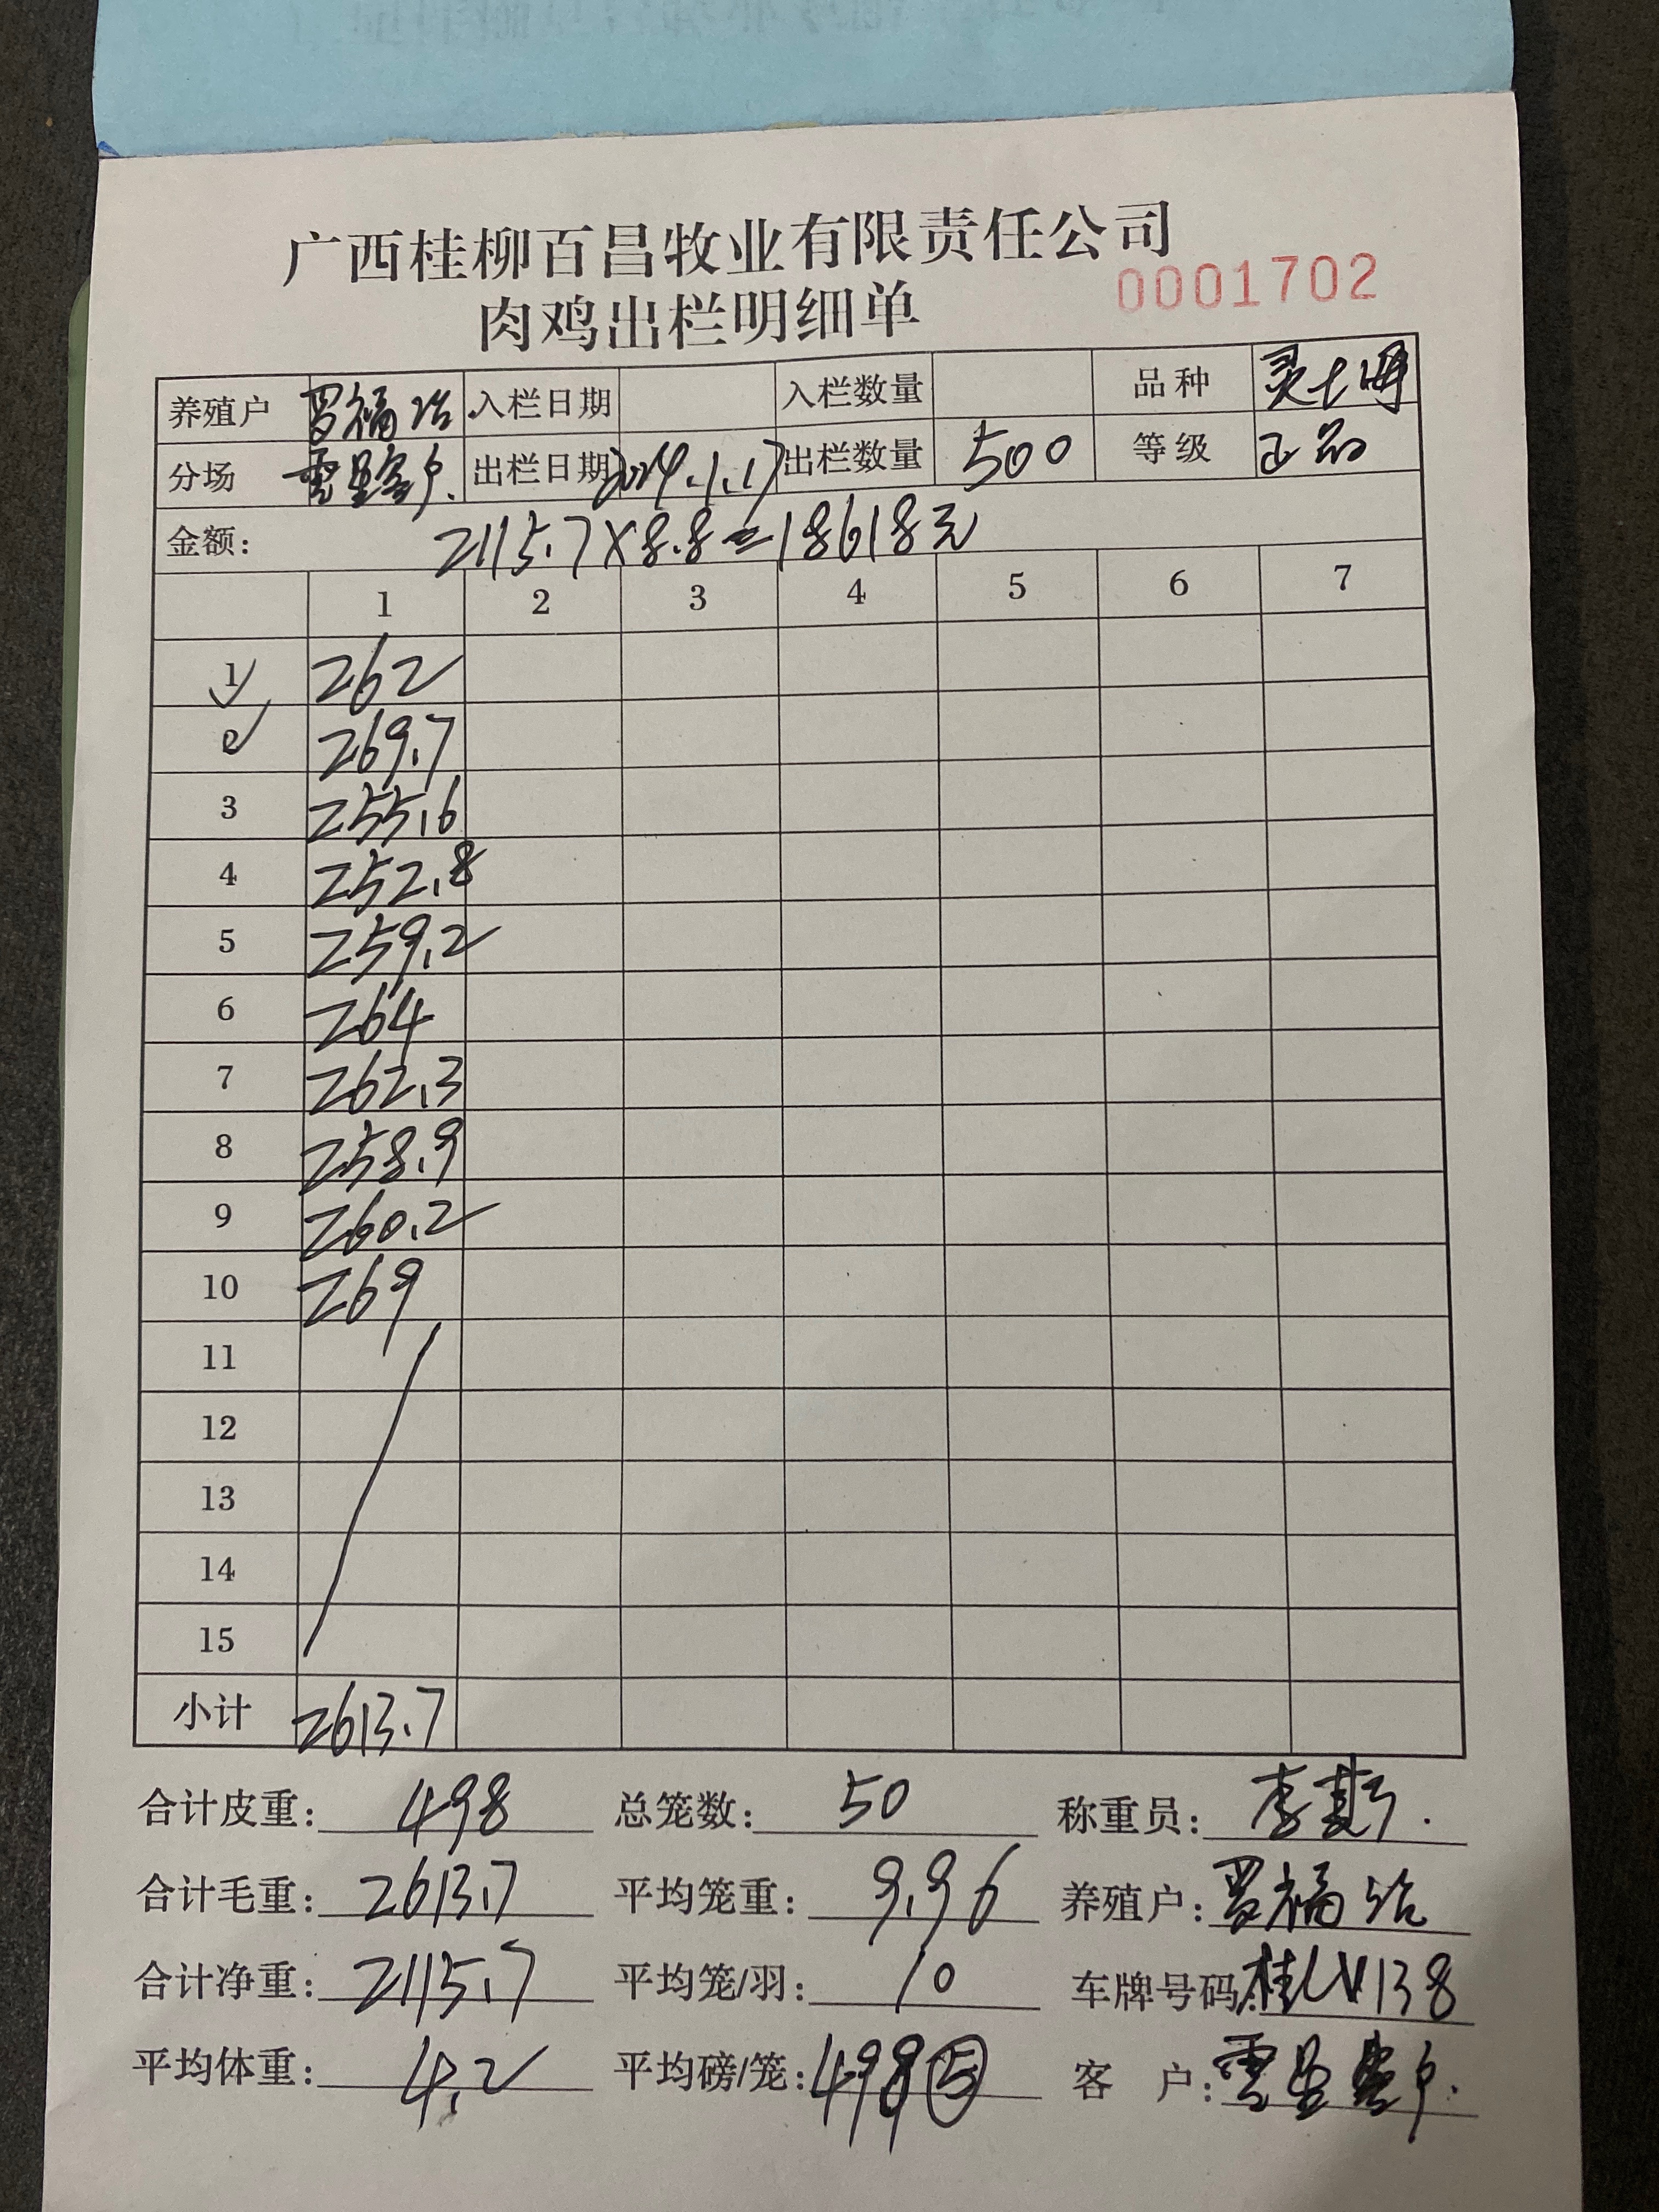 广西桂柳百昌牧业有限责任公司
肉鸡出栏明细单
0001702
养殖户 罗福 入栏日期 入栏数量 品种
分场 出栏日期 2024.1.17 出栏数量 500 等级 正品
金额: 2115.7×8.8=18618元
1 2 3 4 5 6 7
1 262
2 269.7
3 255.6
4 252.8
5 259.2
6 264
7 262.3
8 258.9
9 260.2
10 269
11
12
13
14
15
小计 2613.7
合计皮重: 498 总笼数: 50 称重员: 李
合计毛重: 2613.7 平均笼重: 9.96 养殖户: 罗福
合计净重: 2115.7 平均笼/羽: 10 车牌号码: 桂LV138
平均体重: 4.2 平均磅/笼: 498⑤ 客 户: